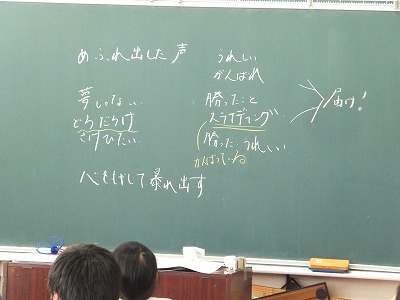 あふれ出した声
夢じゃない
どろだらけ
さけびたい
心をもやして暴れ出す
うれしい
がんばれ
勝ったこと
スライディング
勝った うれしい
がんばっている
届け!